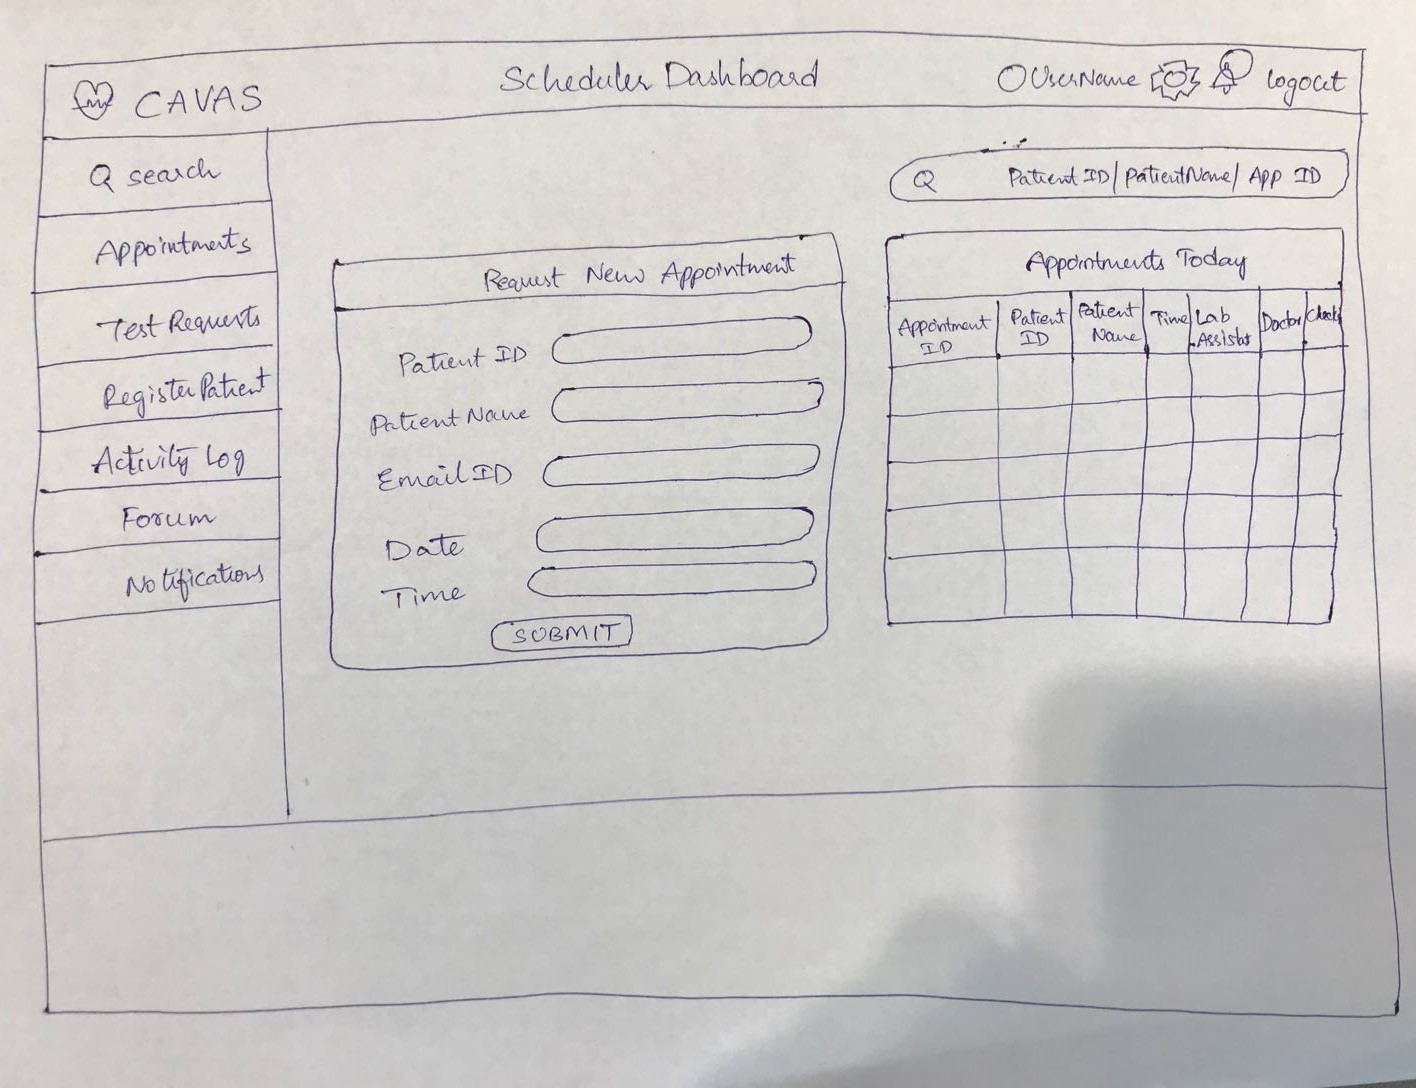 CAVAS
Scheduler Dashboard
UserName
logout
search
Appointments
Test Requests
Register Patient
Activity Log
Forum
Notifications
Patient ID/PatientName/App ID
Request New Appointment
Patient ID
Patient Name
Email ID
Date
Time
SUBMIT
Appointments Today
Appointment
ID
Patient
ID
Patient
Name
Time
Lab
Doctor